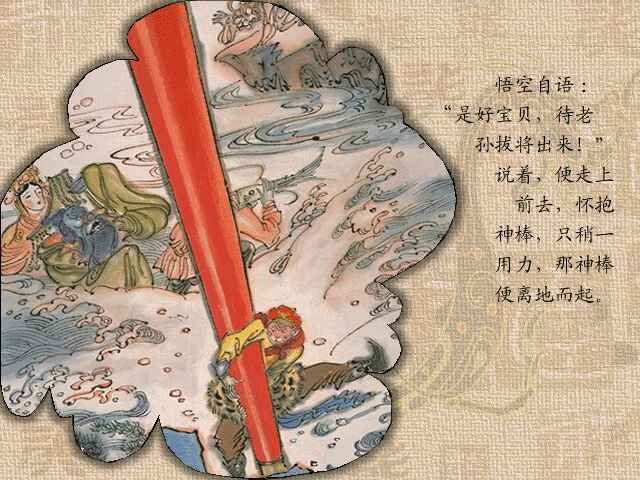 悟空自语：
“是好宝贝，待老
孙拔将出来！”
说着，便走上
前去，怀抱
神棒，只稍一
用力，那神棒
便离地而起。